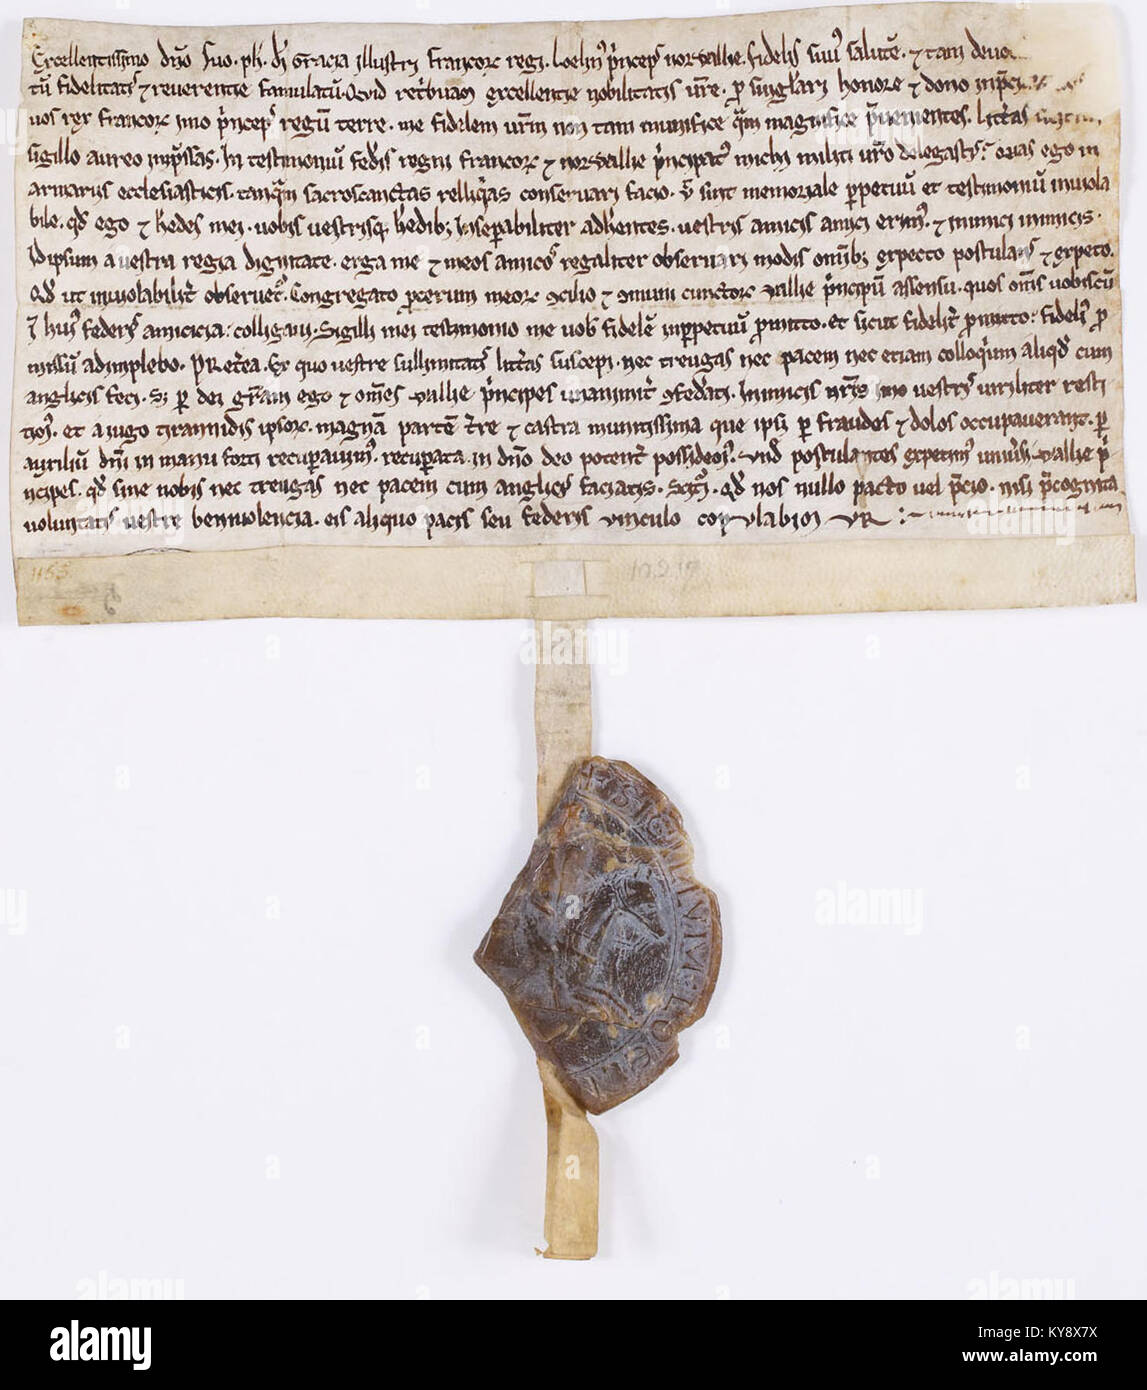 Excellentissimo dño suo . ph . đi gracia illustri francoꝝ regi . Loelin' p'nceps norwallie . fidelis suus salutē . ⁊ tam deuo
tū fidelitatis ⁊ reuerentie famulatū . Quid ret'buam excellentie nobilitatis vr̄e . p singlari honore ⁊ dono
uos rex francoꝝ imo p'nceps regū terre . me fidelem vr̄m non tam munifice q̄m magnifice p'uenientes . litt'as
sigillo aureo imp'ssas . In testimoniū fed'is regni francoꝝ ⁊ norwallie p'ncipat' michi militi vr̄o delegastis . Quas ego in
armariis ecclesiasticis . tanq̄m sacrosanctas relliq'as conseruari facio . Vt sint memoriale p̱petuū et testimoniū inuiola
bile . qđ ego ⁊ h'edes mei . uobis uestrisq; h'edib; insep̱abiliter adh'entes . uestris amicis amici erim' . ⁊ inimici inimicis .
Idipsum a uestra regia dignitate . erga me ⁊ meos amicos regaliter obseruari modis om̄ib; expecto postulans ⁊ expeto .
Qđ ut inuiolabilit' obseruet' . Congregato p̱cerum meoꝝ ꝯcilio ⁊ ꝯmuni cunctoꝝ wallie p'ncipū assensu . quos om̄s uobiscū
ī hui' feder's amicicia : colligaui . Sigilli mei testimonio me uob' fidelē inp̱petuū p̱mitto . et sicut fidelit' p̱mitto : fideli' p̱
missū adimplebo . Pret'ea . Ex quo vestre sullimitatis litt'as suscepi . nec treugas nec pacem nec etiam colloq'um aliqđ cum
anglicis feci . S; p̱ dei gr̄am ego ⁊ om̄es wallie p'ncipes unanimit' ꝯfed'ati . Inimicis nr̄is imo vestris uiriliter resti
tim' . et a iugo tirannidis ipsoꝝ . magnā partē t'rre ⁊ castra munitissima que ipsi p̱ fraudes ⁊ dolos occupauerant . p̱
auxiliū dn̄i in manu forti recup̱auim' . recup̱ata . in dn̄o deo potent' possidem' . Vnđ postulantes expetim' uniu'si wallie p'
ncipes . qđ sine nobis nec treugas nec pacem cum anglicis faciatis . qđ nos nullo pacto uel p̄cio . nisi p̄cognita
voluntatis vestre beniuolencia . eis aliquo pacis seu federis vinculo copulabimur :
1155
SIGILLVM LO
alamy
Image ID: KY8X7X
www.alamy.com